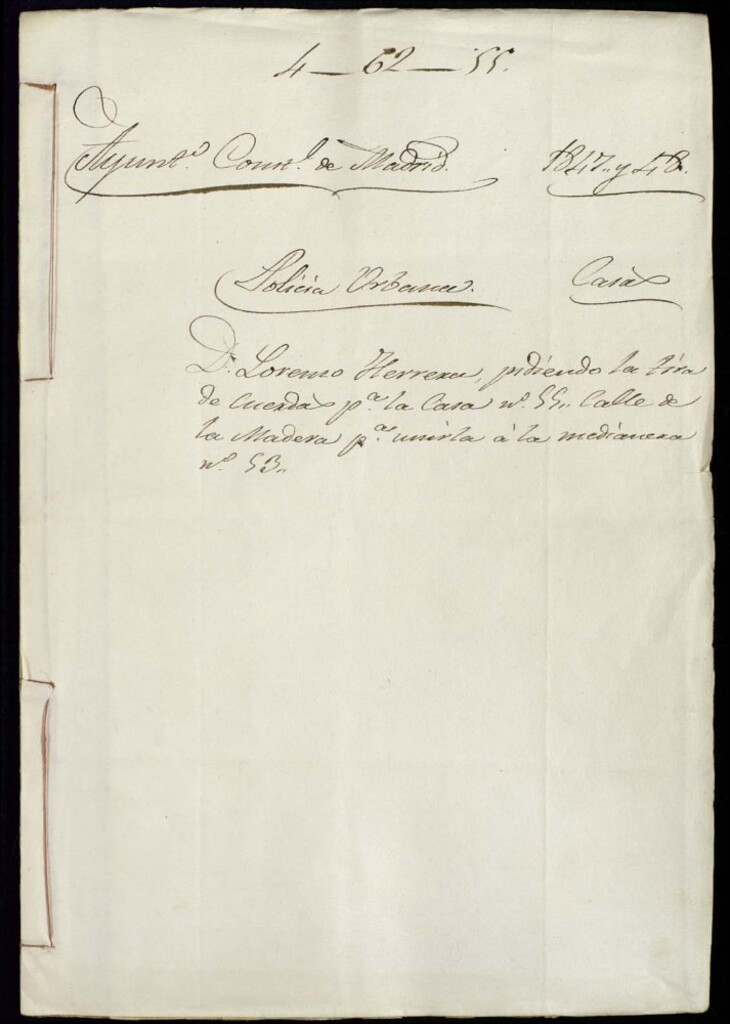 4 — 62 — 55.
Ayunto. Constl. de Madrid. 1847,, y 48.
Policia Urbana. Casas
D. Lorenzo Herrera, pidiendo la tira
de cuerdas pa. la Casa no. 55,, Calle de
la Madera pa. unirla à la medianera
no. 53,,